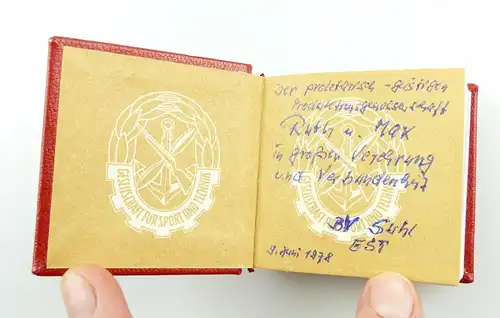 GESELLSCHAFT FÜR SPORT UND TECHNIK
Der proletarisch-geistigen
Produktionsgenossenschaft
Ruth u. Max
in großer Verehrung
und Verbundenheit
BV Suhl
EST
9. Juni 1978
GESELLSCHAFT FÜR SPORT UND TECHNIK